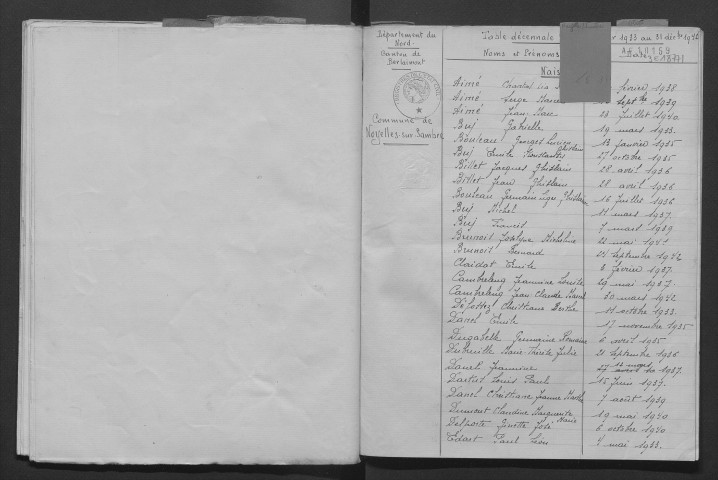 Département du
Nord.
Canton de
Berlaimont
Commune de
Noyelles-sur-Sambre
Table décennale 1933 au 31 déc.bre 1942
Noms et Prénoms Dates
Nais
Aimé Chantal février 1938
Aimé Serge Marc sept.bre 1939
Aimé Jean Marc 28 juillet 1940.
Bus Gabrielle 19 mars 1933.
Bouleau Georges Lucien Ghislain 13 janvier 1935
Bus Emile Constantin 27 octobre 1935
Billet Jacques Ghislain 28 avril 1936
Billet Jean Ghislain 28 avril 1936
Bouleau Germain Ghislain 16 juillet 1936
Bus Michel 11 mars 1937.
Bus Francis 7 mars 1939
Brunoit Jocelyne Micheline 22 mai 1941
Brunoit Bernard 24 septembre 1942
Claidat Emile 8 février 1937.
Cambreleng Jeannine Louise 29 mai 1937.
Cambreleng Jean Claude 30 mars 1942
Christiane Berthe 11 octobre 1933.
Danel Emile 17 novembre 1935
Dugabelle Germaine Romaine 6 avril 1935
Dubreuille Marie Thérèse Julie 21 septembre 1936
Danel Jeannine 11 mars 1937.
Louis Paul 15 juin 1937.
Danel Christiane Jeanne Marthe 7 août 1939
Dumont Claudine Marguerite Marie 19 mai 1940
Delporte Ginette 6 octobre 1940
Edart Paul Léon 4 mai 1933.